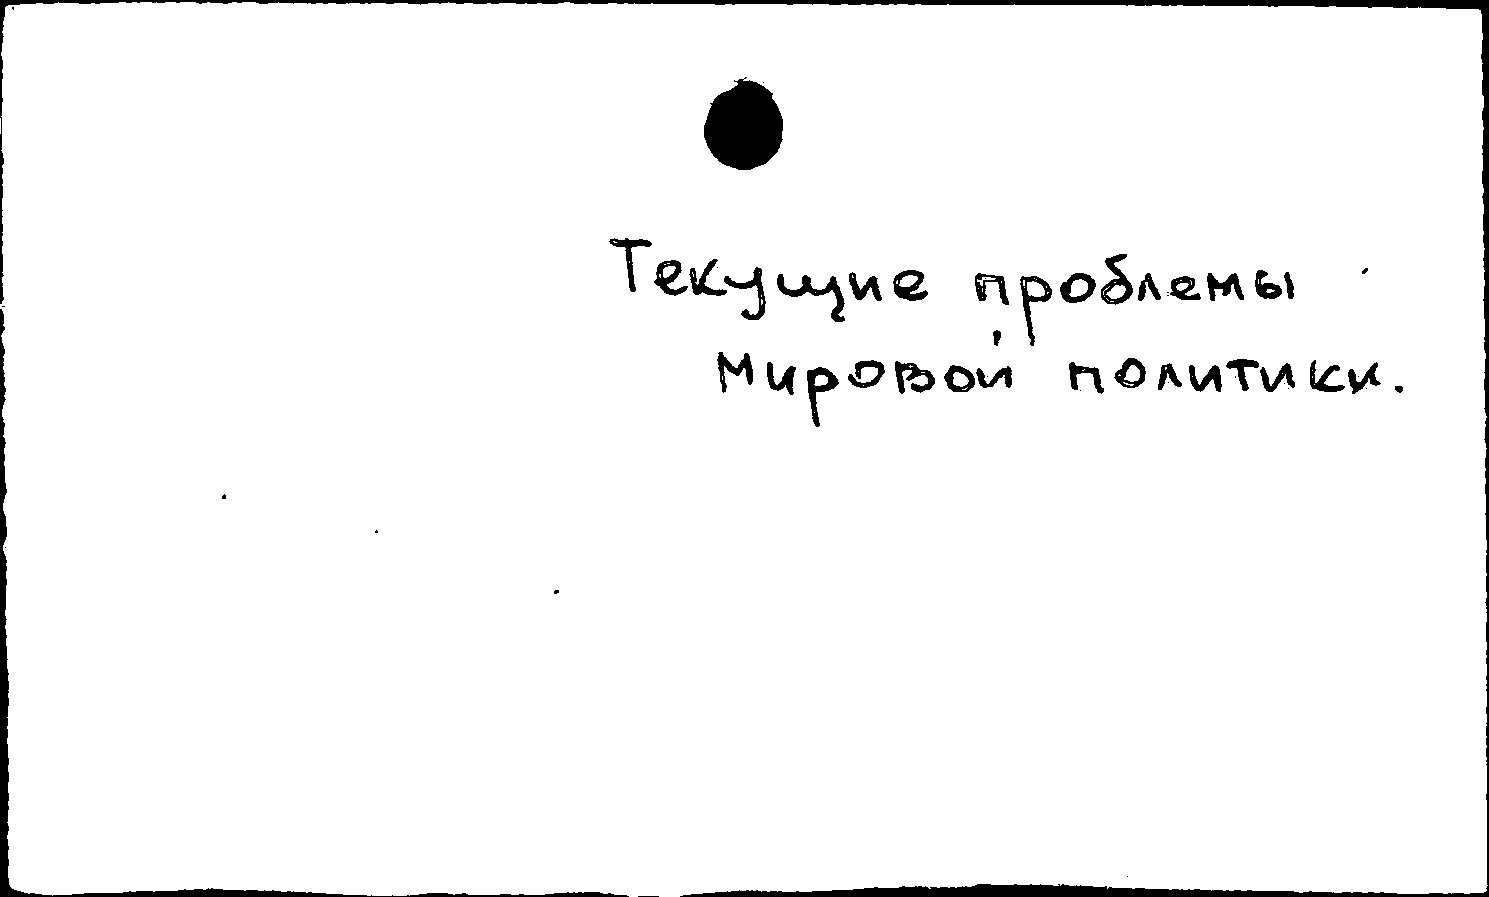 Текущие проблемы
мировой политики.